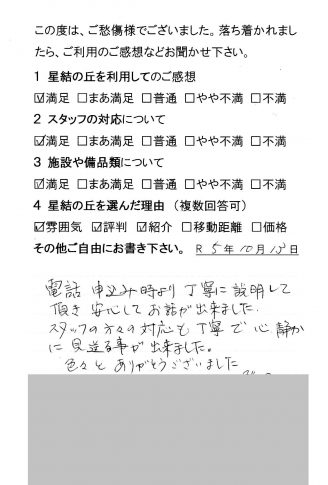 この度は、ご愁傷様でございました。落ち着かれまし
たら、ご利用のご感想などお聞かせ下さい。
1 星結の丘を利用してのご感想
☑満足 □まあ満足 □普通 □やや不満 □不満
2 スタッフの対応について
☑満足 □まあ満足 □普通 □やや不満 □不満
3 施設や備品類について
☑満足 □まあ満足 □普通 □やや不満 □不満
4 星結の丘を選んだ理由（複数回答可）
☑雰囲気 ☑評判 ☑紹介 □移動距離 □価格
その他ご自由にお書き下さい。 R 5年10月13日
電話 申込み時より 丁寧に説明して
頂き 安心して お話が出来ました.
スタッフの方々の対応も 丁寧で 心静か
に 見送る事が出来ました。
色々と ありがとうございました